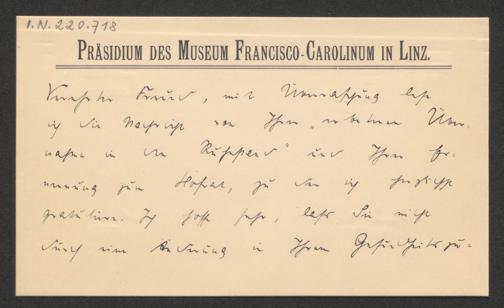 I.N. 220.718
PRÄSIDIUM DES MUSEUM FRANCISCO-CAROLINUM IN LINZ.
Verehrter Freund, mit Überraschung lese
ich die Nachricht von Ihrer „erbetenen Über-
nahme in den Ruhestand" und Ihrer Er-
nennung zum Hofrat, zu der ich herzlichst
gratuliere. Ich hoffe sehr, daß Sie nicht
durch eine Änderung in Ihrem Gesundheitszu-